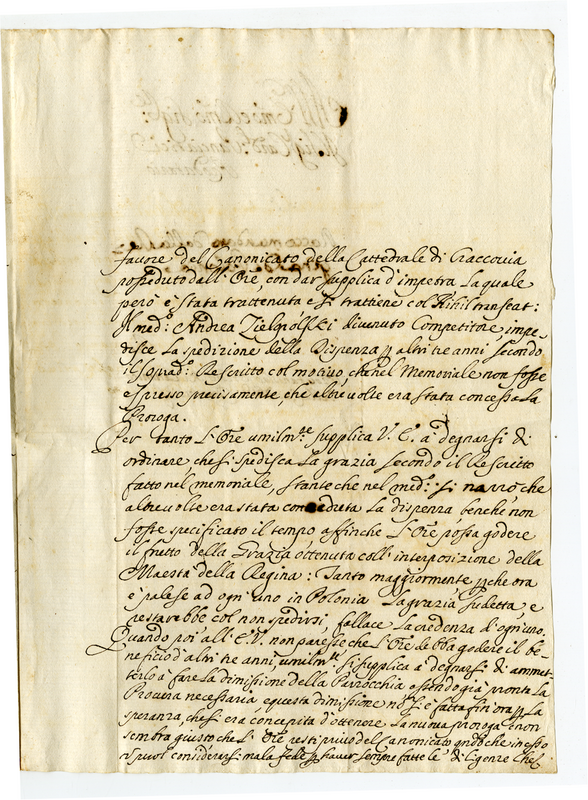 favore del Canonicato della Cattedrale di Craccovia
posseduto dall' Ore, con dar supplica d'impetra La quale
però è stata trattenuta e si trattiene col Nihil transeat:
Il med.º Andrea Zielopolski divenuto Competitore, impe-
disce La spedizione della Dispenza p altri tre anni secondo
Rescritto col motivo, che nel Memoriale non fosse
espresso precisamente, che altre volte era stata concessa La
Proroga.
Per tanto L'Ore umilm.te supplica V. E. a degnarsi di
ordinare, che si spedisca La grazia secondo il Rescritto
fatto nel memoriale, stante che nel med.º si narrò che
altre volte era stata conceduta La dispenza benche non
fosse specificato il tempo affinche L'Ore possa godere
il frutto della Grazia ottenuta coll' interposizione della
Maestà della Regina: Tanto maggiormente, pche ora
è palese ad ogni uno in Polonia La grazia sudetta e
restarebbe col non spedirsi, fallace La credenza d'ogni uno.
Quando poi all' E.V. non paresse che L'Ore debba godere il be-
neficio d'altri tre anni, umilm.te si supplica a degnarsi di ammet-
terlo a fare La dimissione della Parrocchia essendo già pronta La
Procura necessaria e questa dimissione non si è fatta fin' ora p La
speranza, che si era concepita d'ottenere La nuova proroga e non
sembra giusto che L'Ore resti privo del Canonicato che in esso
si puol considerarsi mala fede p haver sempre fatte le diligenze che